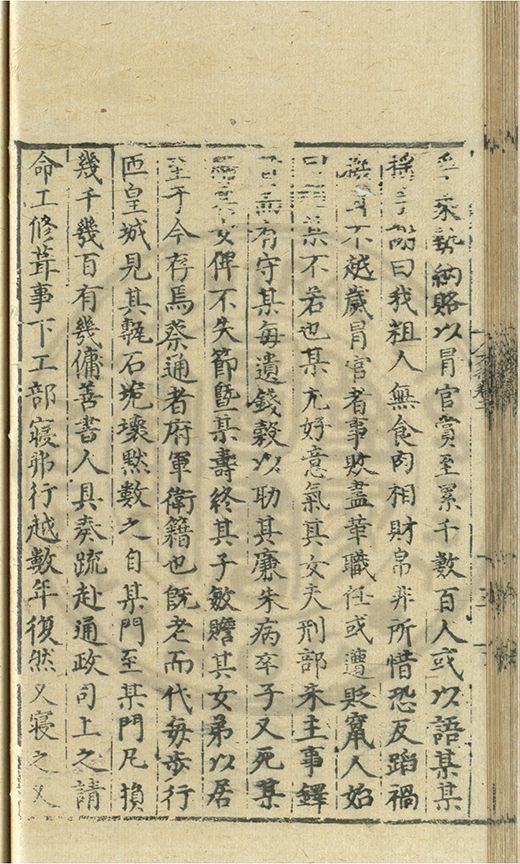 乘勢納賂以冒官賞至累千數百人或以語某某
搖手謝曰我粗人無食肉相財帛非所惜恐反蹈禍
不越歲冒官者事敗盡華職任或遭貶竄人始
某不若也某尤好意氣其女夫刑部朱主事鐸
有守某每遺錢穀以助其廉朱病卒子又死某
女俾不失節曁某壽終其子敏贍其女弟以居
至于今存焉蔡通者府軍衛籍也既老而代每步行
匝皇城見其甃石垝壞默數之自某門至某門凡損
幾千幾百有幾傭善書人具奏疏赴通政司上之請
命工修葺事下工部寢弗行越數年復然又寢之又